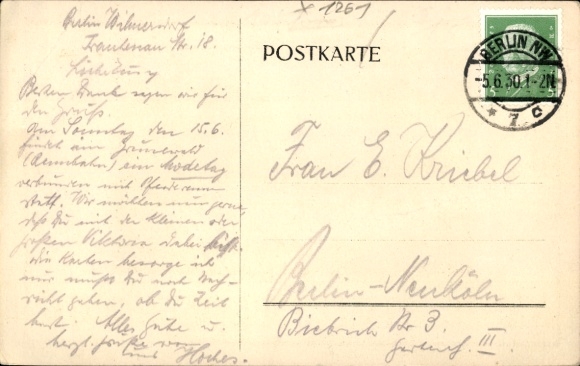 x 1261
Berlin Wilmersdorf
Trautenau Str. 18.
Besten Dank sagen wir für
den Gruß.
Am Sonntag den 15.6.
findet im Grunewald
(Rennbahn) ein Modetag
verbunden mit Pferderennen
statt. Wir möchten nun gerne,
daß Du mit der kleinen oder
großen Viktoria dabei bist.
die Karten besorge ich
nur mußt Du noch Nach-
richt geben, ob Du Zeit
hast. Alles Gute u.
herzl. Grüße von
uns
POSTKARTE
BERLIN NW
-5.6.30.1-2N
* 7 c
Frau E. Kriebel
Berlin-Neuköln
Biebrich Str 3.
Gartenh. III